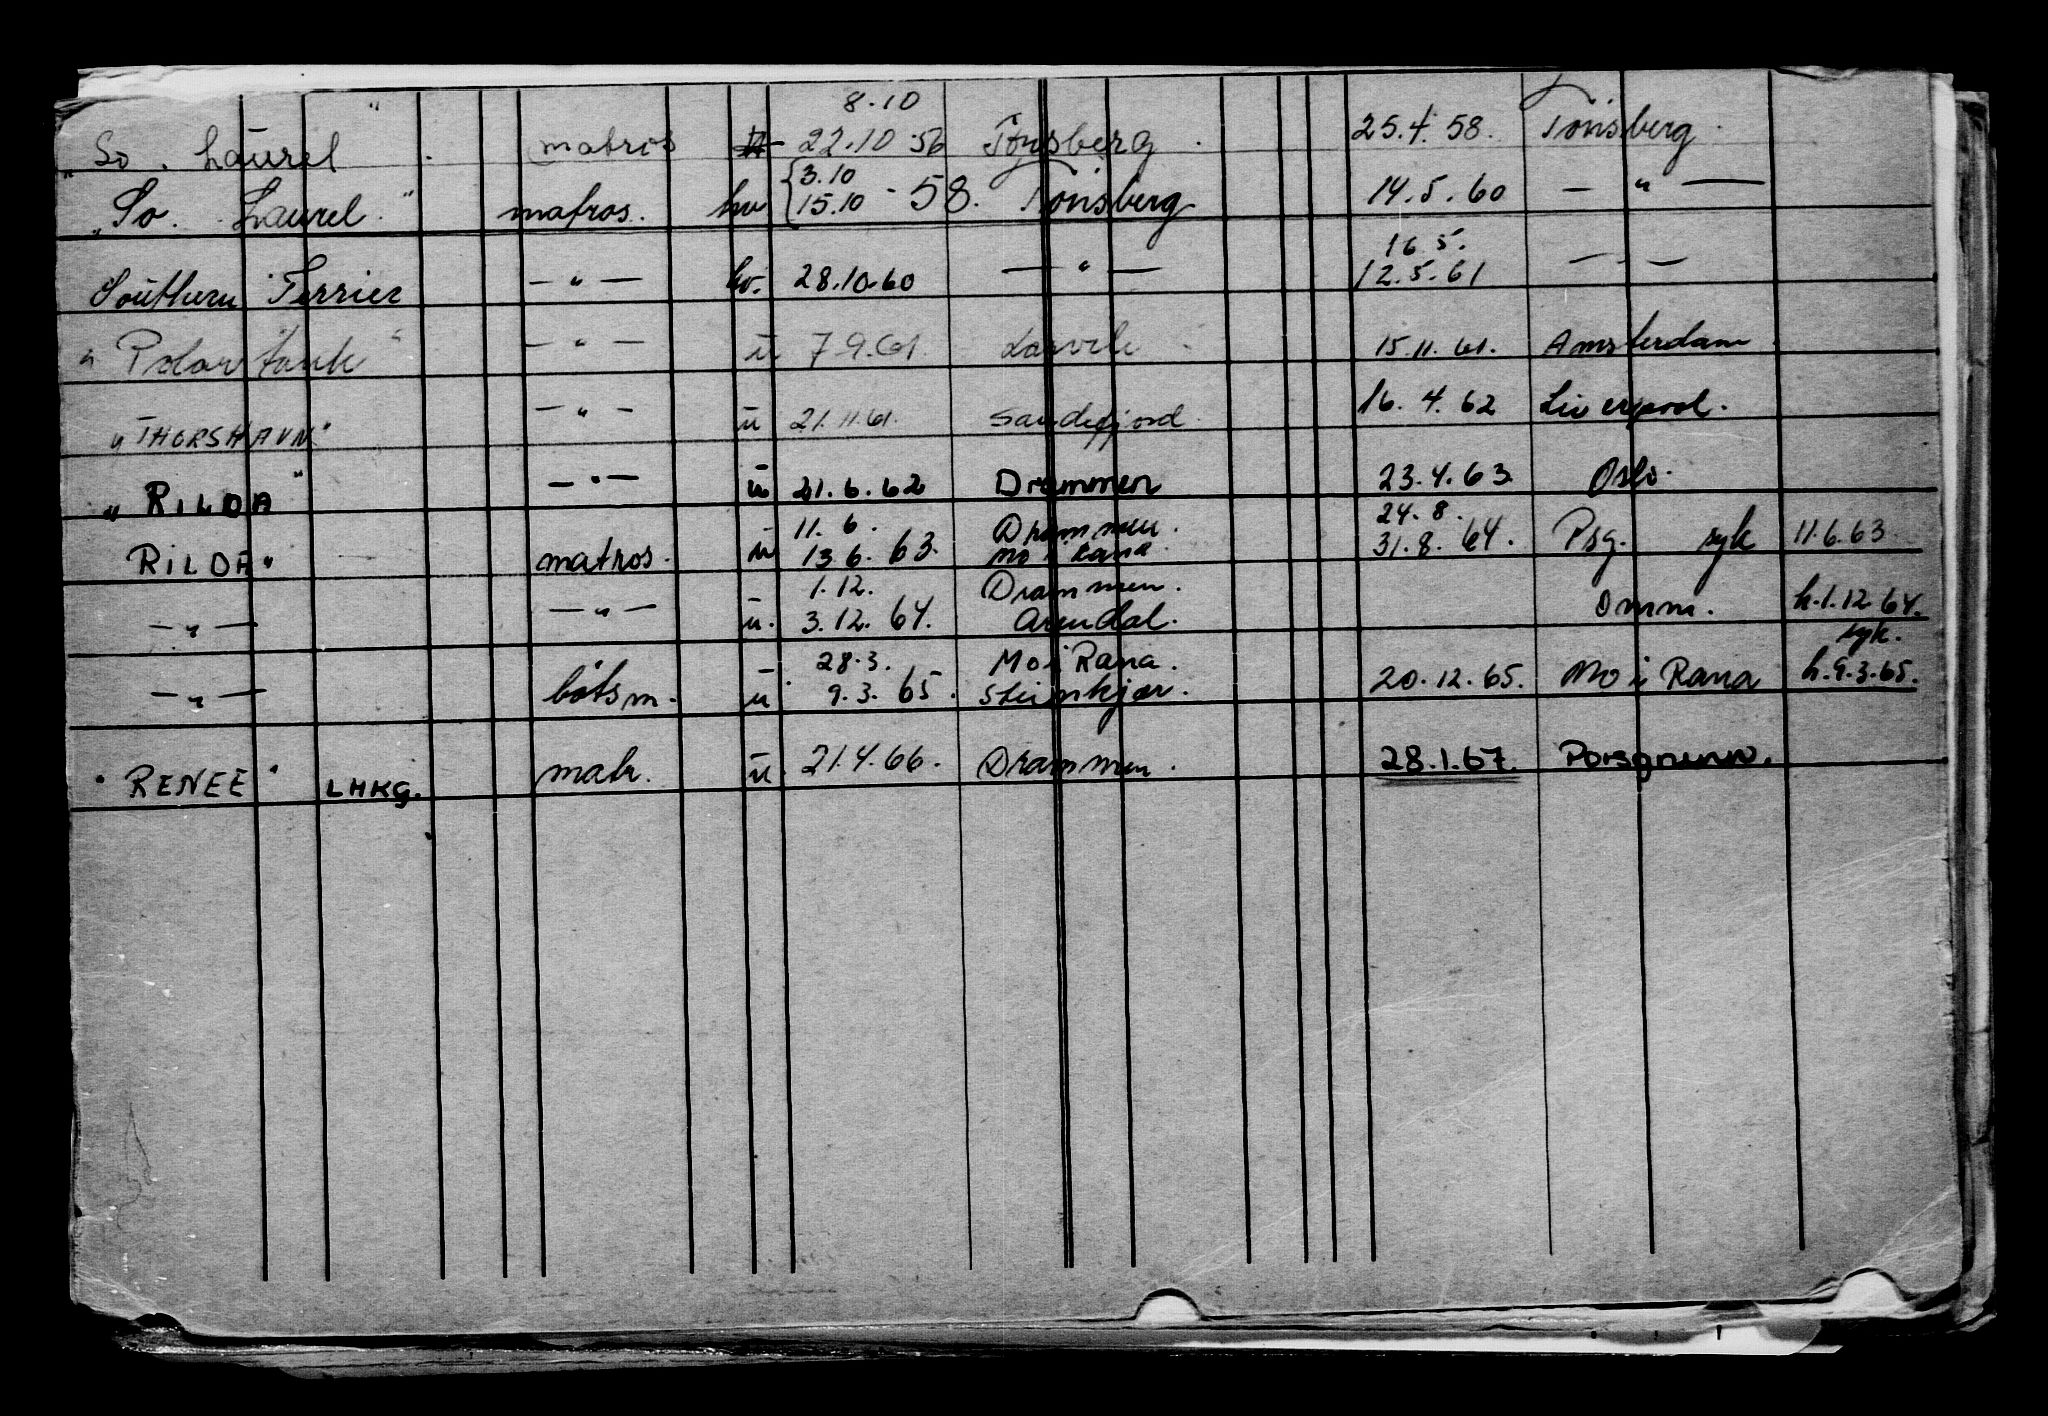 8.10
"So. Laurel" matros 22.10 56 Tönsberg 25.4.58. Tönsberg.
3.10
"So. Laurel." matros. hv 15.10 - 58. Tönsberg 14.5.60 — " —
16 5.
Southern Terrier — " — hv. 28.10.60 — " — 12.5.61 — " —
"Polar tank" — " — ū 7.9.61. Larvik 15.11.61. Amsterdam
"THORSHAVN" — " — ū 21.11.61. Sandefjord. 16.4.62 Liverpool.
"RILDA" — " — ū 21.6.62 Drammen 23.4.63 Oslo.
11.6. Drammen. 24.8.
RILDA" matros. ū 13 6. 63. Mo i Rana. 31.8.64. Psg. syk 11.6.63
1.12. Drammen.
— " — — " — ū. 3.12.64. Arendal. Omm. h.1.12 64.
28.3. Mo i Rana. syk.
— " — båtsm. ū 9.3.65. Steinkjær. 20.12.65. Mo i Rana h.9.3.65.
"RENEE" LHKG. matr. ū 21.4.66. Drammen. 28.1.67. Porsgrunn.